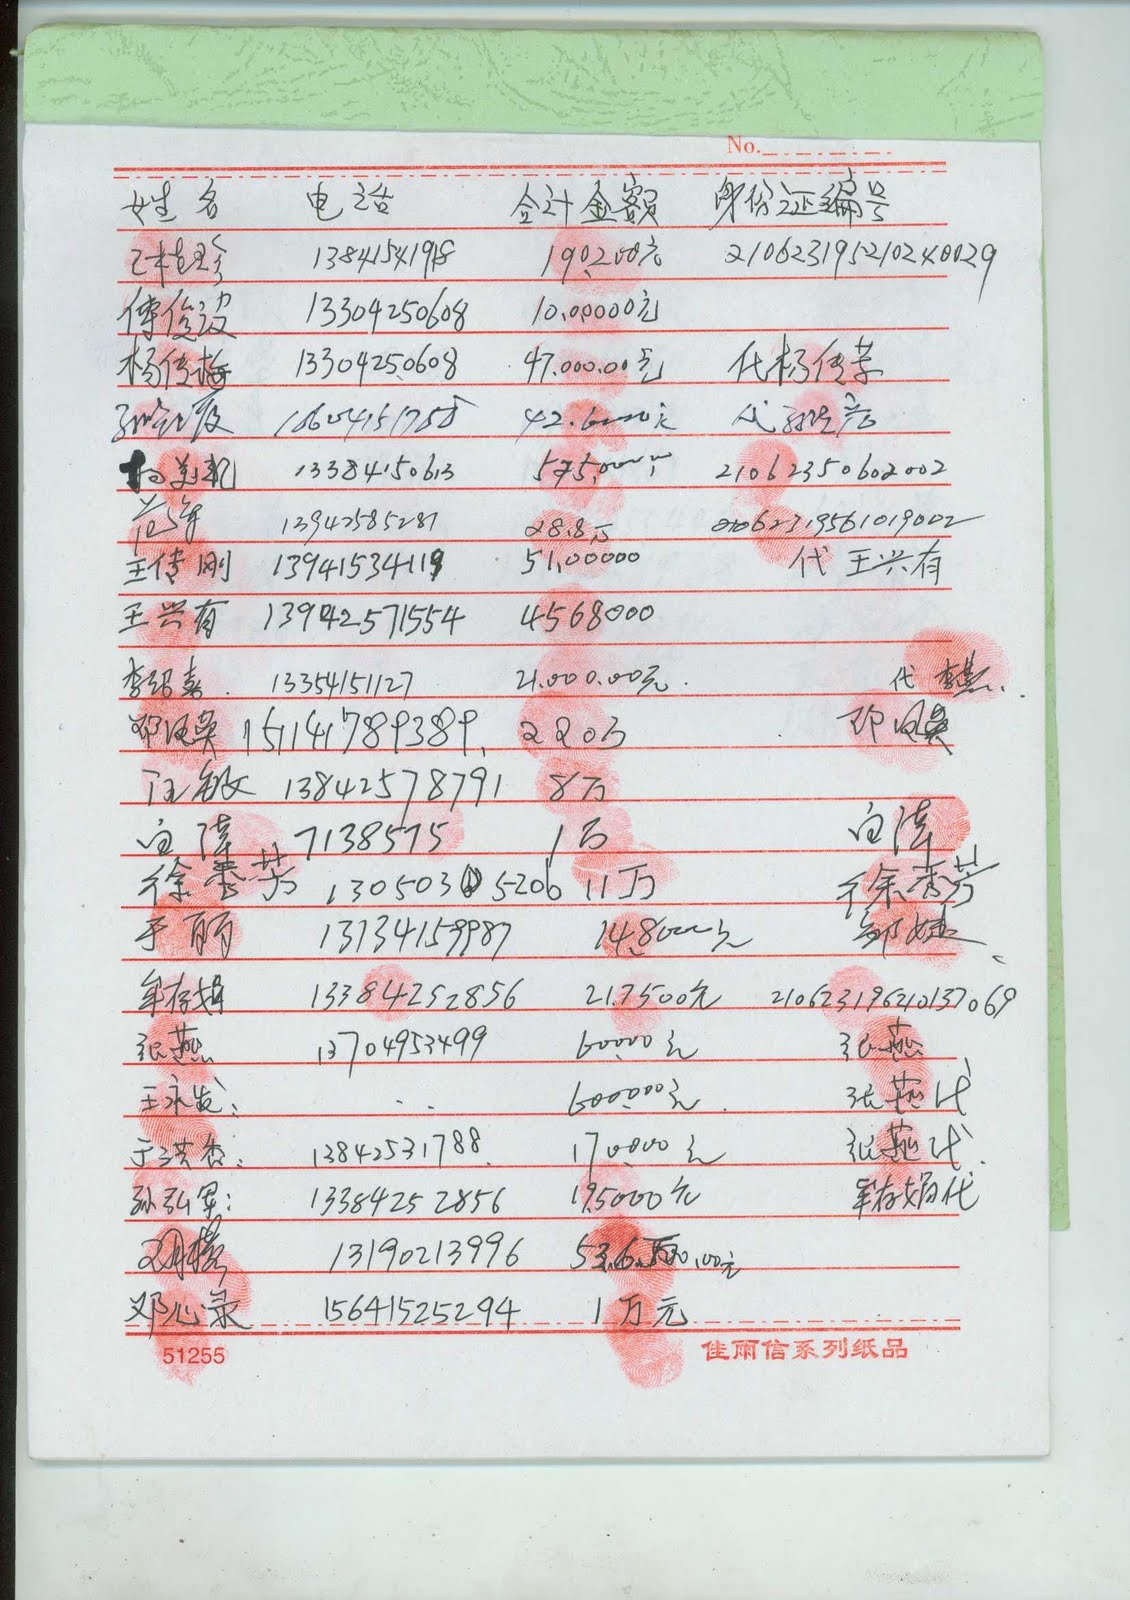 No.
姓名 电话 合计金额 身份证编号
13841541918 190200元 210623195210240029
傅俊波 13304250608 10.00000元
杨传梅 13304250608 47.000.00元 代杨传芳
18604151758
13384150613 21062350602002
范军 13942585287 28.8万
王传刚 13941534119 51,00000 代 王兴有
王兴有 13942571554 4568000
李绍嘉 13354151127 21.000.00元. 代 李
邓凤英 151141789389 220万 邓凤英
汪敏 13842578791 8万
白萍 7138575 1万 白萍
徐秀芳 130503 5206 11万 徐秀芳
于丽 13134159987 148000元 邹建
牟存娟 13384252856 217500元 21062319620137069
张燕 13704953499 60000元 张燕
王永发: 600000元 张燕代
于洪香: 13842531788 170000元 张燕代
孙弘军: 13384252856 195000元 牟存娟代
13190213996
邓心录 15641525294 1万元
51255 佳雨信系列纸品